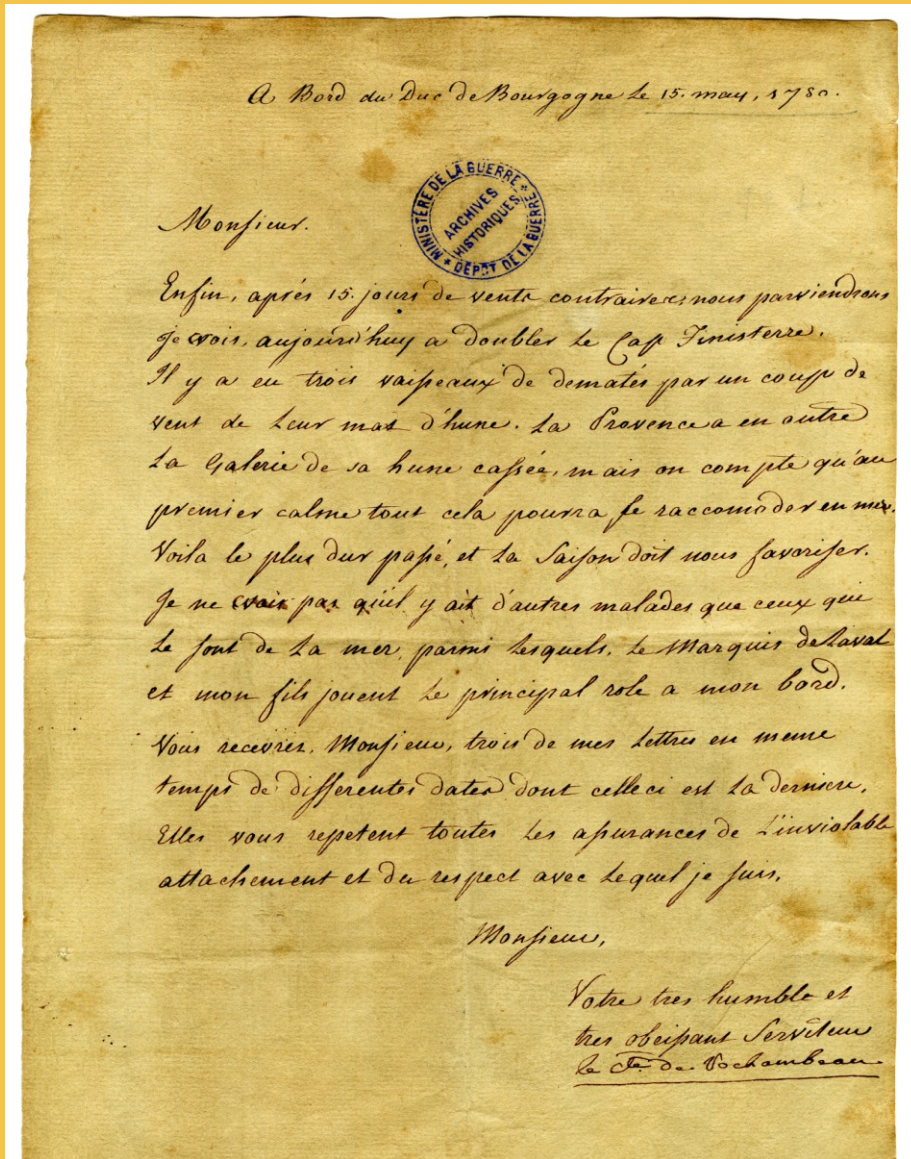 A Bord du Duc de Bourgogne Le 15. may, 1780.
MINISTÈRE DE LA GUERRE
ARCHIVES
HISTORIQUES
DÉPOT DE LA GUERRE
Monsieur.
Enfin, aprés 15. jours de vents contraires nous parviendrons
je crois, aujourd'huy a doubler Le Cap Finisterre.
Il y a eu trois vaisseaux de dematés par un coup de
vent de Leur mat d'hune. La Provence a en outre
La Galerie de sa hune cassée, mais on compte qu'au
premier calme tout cela pourra se raccomoder en mer.
Voila le plus dur passé, et La Saison doit nous favoriser.
Je ne crois pas qu'il y ait d'autres malades que ceux qui
Le sont de La mer, parmi Lesquels, Le Marquis de Laval
et mon fils jouent Le principal role a mon bord.
Vous recevrez, Monsieur, trois de mes Lettres en meme
temps de differentes dates dont celle ci est La derniere.
Elles vous repetent toutes Les assurances de L'inviolable
attachement et du respect avec Lequel je suis.
Monsieur,
Votre tres humble et
tres obeissant Serviteur
le cte. de Rochambeau